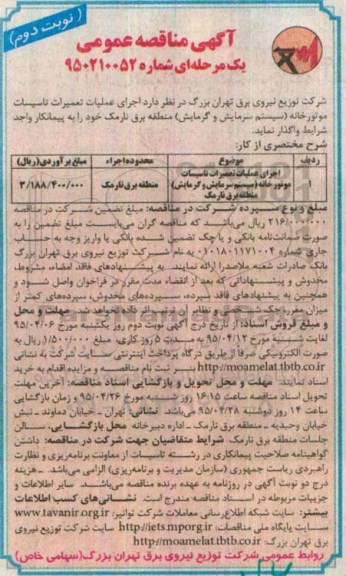 ( نوبت دوم )
آگهی مناقصه عمومی
یک مرحله‌ای شماره ۹۵۰۲۱۰۰۵۲
شرکت توزیع نیروی برق تهران بزرگ در نظر دارد اجرای عملیات تعمیرات تاسیسات
موتورخانه (سیستم سرمایش و گرمایش) منطقه برق نارمک خود را به پیمانکار واجد
شرایط واگذار نماید.
شرح مختصری از کار:
ردیف موضوع محدوده اجراء مبلغ برآوردی(ریال)
۱ اجرای عملیات تعمیرات تاسیسات موتورخانه (سیستم سرمایش و گرمایش) منطقه برق نارمک منطقه برق نارمک ۳/۱۸۸/۴۰۰/۰۰۰
مبلغ و نوع سپرده شرکت در مناقصه: مبلغ تضمین شرکت در مناقصه
۲۱۶/۰۰۰/۰۰۰ ریال می‌باشد که مناقصه گران می‌بایست مبلغ تضمین را به
صورت ضمانت‌نامه بانکی و یا چک تضمین شده بانکی یا واریز وجه به حساب
جاری شماره ۰۱۰۱۸۰۱۱۷۱۰۰۴ به نام شرکت توزیع نیروی برق تهران بزرگ
بانک صادرات شعبه ملاصدرا ارائه نمایند. به پیشنهادهای فاقد امضاء، مشروط،
مخدوش و پیشنهاداتی که بعد از انقضاء مدت مقرر در فراخوان واصل شود و
همچنین به پیشنهادهای فاقد سپرده، سپرده‌های مخدوش، سپرده‌های کمتر از
میزان مقرر، چک شخصی و نظایر آن ترتیب اثر داده نخواهد شد. مهلت و محل
و مبلغ فروش اسناد: از تاریخ درج آگهی نوبت دوم روز یکشنبه مورخ ۹۵/۰۴/۰۶
لغایت شنبه مورخ ۹۵/۰۴/۱۲ به مدت ۵ روز کاری، مبلغ ۱/۵۰۰/۰۰۰ ریال به
صورت الکترونیکی صرفا از طریق درگاه پرداخت اینترنتی سایت شرکت به نشانی
http://moamelat.tbtb.co.ir بنر ثبت نام مناقصه و مزایده اقدام به خرید
اسناد نمایند. مهلت و محل تحویل و بازگشایی اسناد مناقصه: آخرین مهلت
تحویل اسناد مناقصه ساعت ۱۶:۱۵ روز شنبه مورخ ۹۵/۰۴/۲۶ و زمان بازگشایی
ساعت ۱۴ روز دوشنبه ۹۵/۰۴/۲۸ می‌باشد. نشانی: تهران - خیابان دماوند - نبش
خیابان وحیدیه - منطقه برق نارمک - اداره دبیرخانه محل بازگشایی: سالن
جلسات منطقه برق نارمک. شرایط متقاضیان جهت شرکت در مناقصه: داشتن
گواهینامه صلاحیت پیمانکاری در رشته تاسیسات از معاونت برنامه‌ریزی و نظارت
راهبردی ریاست جمهوری (سازمان مدیریت و برنامه‌ریزی) الزامی می‌باشد. هزینه
درج دو نوبت آگهی در روزنامه به عهده برنده مناقصه می‌باشد. سایر اطلاعات و
جزییات مربوطه در اسناد مناقصه مندرج است. نشانی‌های کسب اطلاعات
بیشتر: سایت شبکه اطلاع‌رسانی معاملات شرکت توانیر: www.tavanir.org.ir
سایت پایگاه ملی مناقصات: http://iets.mporg.ir سایت شرکت توزیع نیروی
برق تهران بزرگ: http://moamelat.tbtb.co.ir
روابط عمومی شرکت توزیع نیروی برق تهران بزرگ(سهامی خاص)